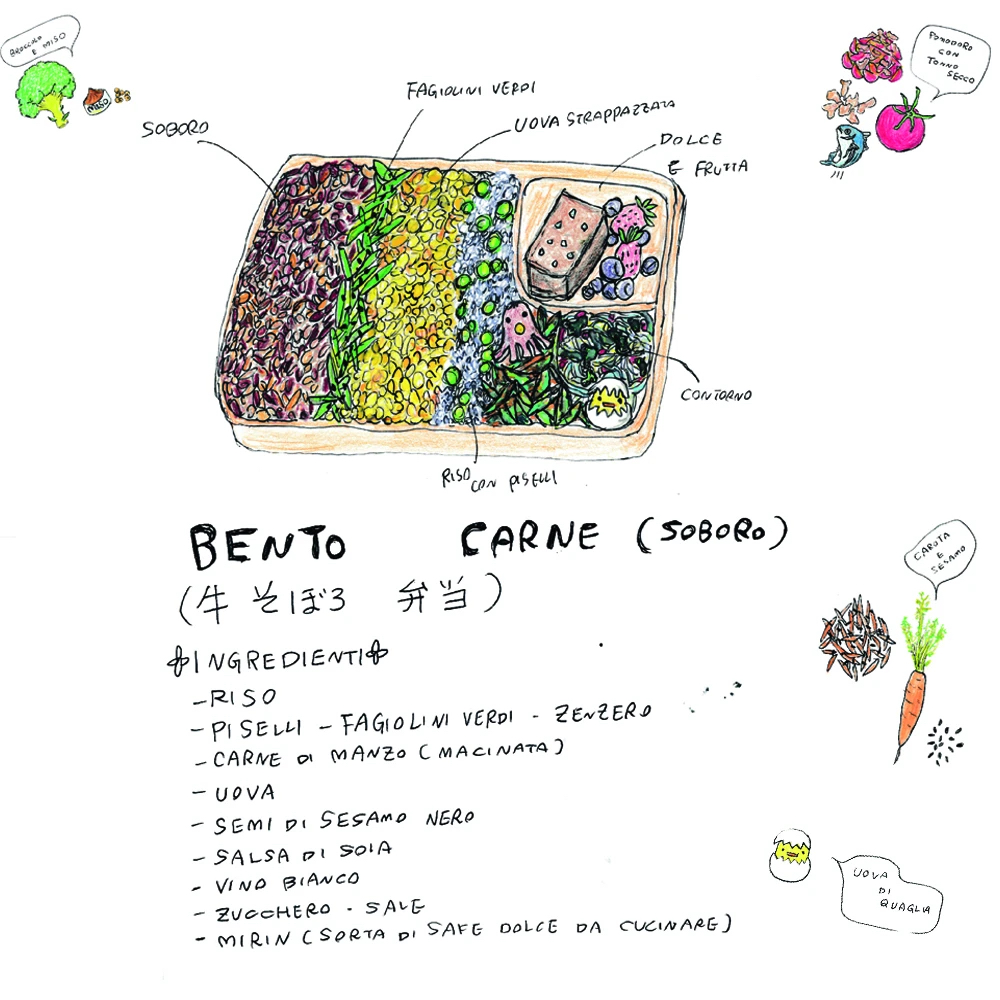 BROCCOLO
E MISO
MISO
POMODORO
CON
TONNO
SECCO
FAGIOLINI VERDI
UOVA STRAPPAZZATA
SOBORO
DOLCE
E FRUTTA
CONTORNO
RISO CON PISELLI
BENTO CARNE (SOBORO)
(牛そぼろ 弁当)
INGREDIENTI
- RISO
- PISELLI - FAGIOLINI VERDI - ZENZERO
- CARNE DI MANZO (MACINATA)
- UOVA
- SEMI DI SESAMO NERO
- SALSA DI SOIA
- VINO BIANCO
- ZUCCHERO - SALE
- MIRIN (SORTA DI SAFE DOLCE DA CUCINARE)
CAROTA
E
SESAMO
UOVA
DI
QUAGLIA